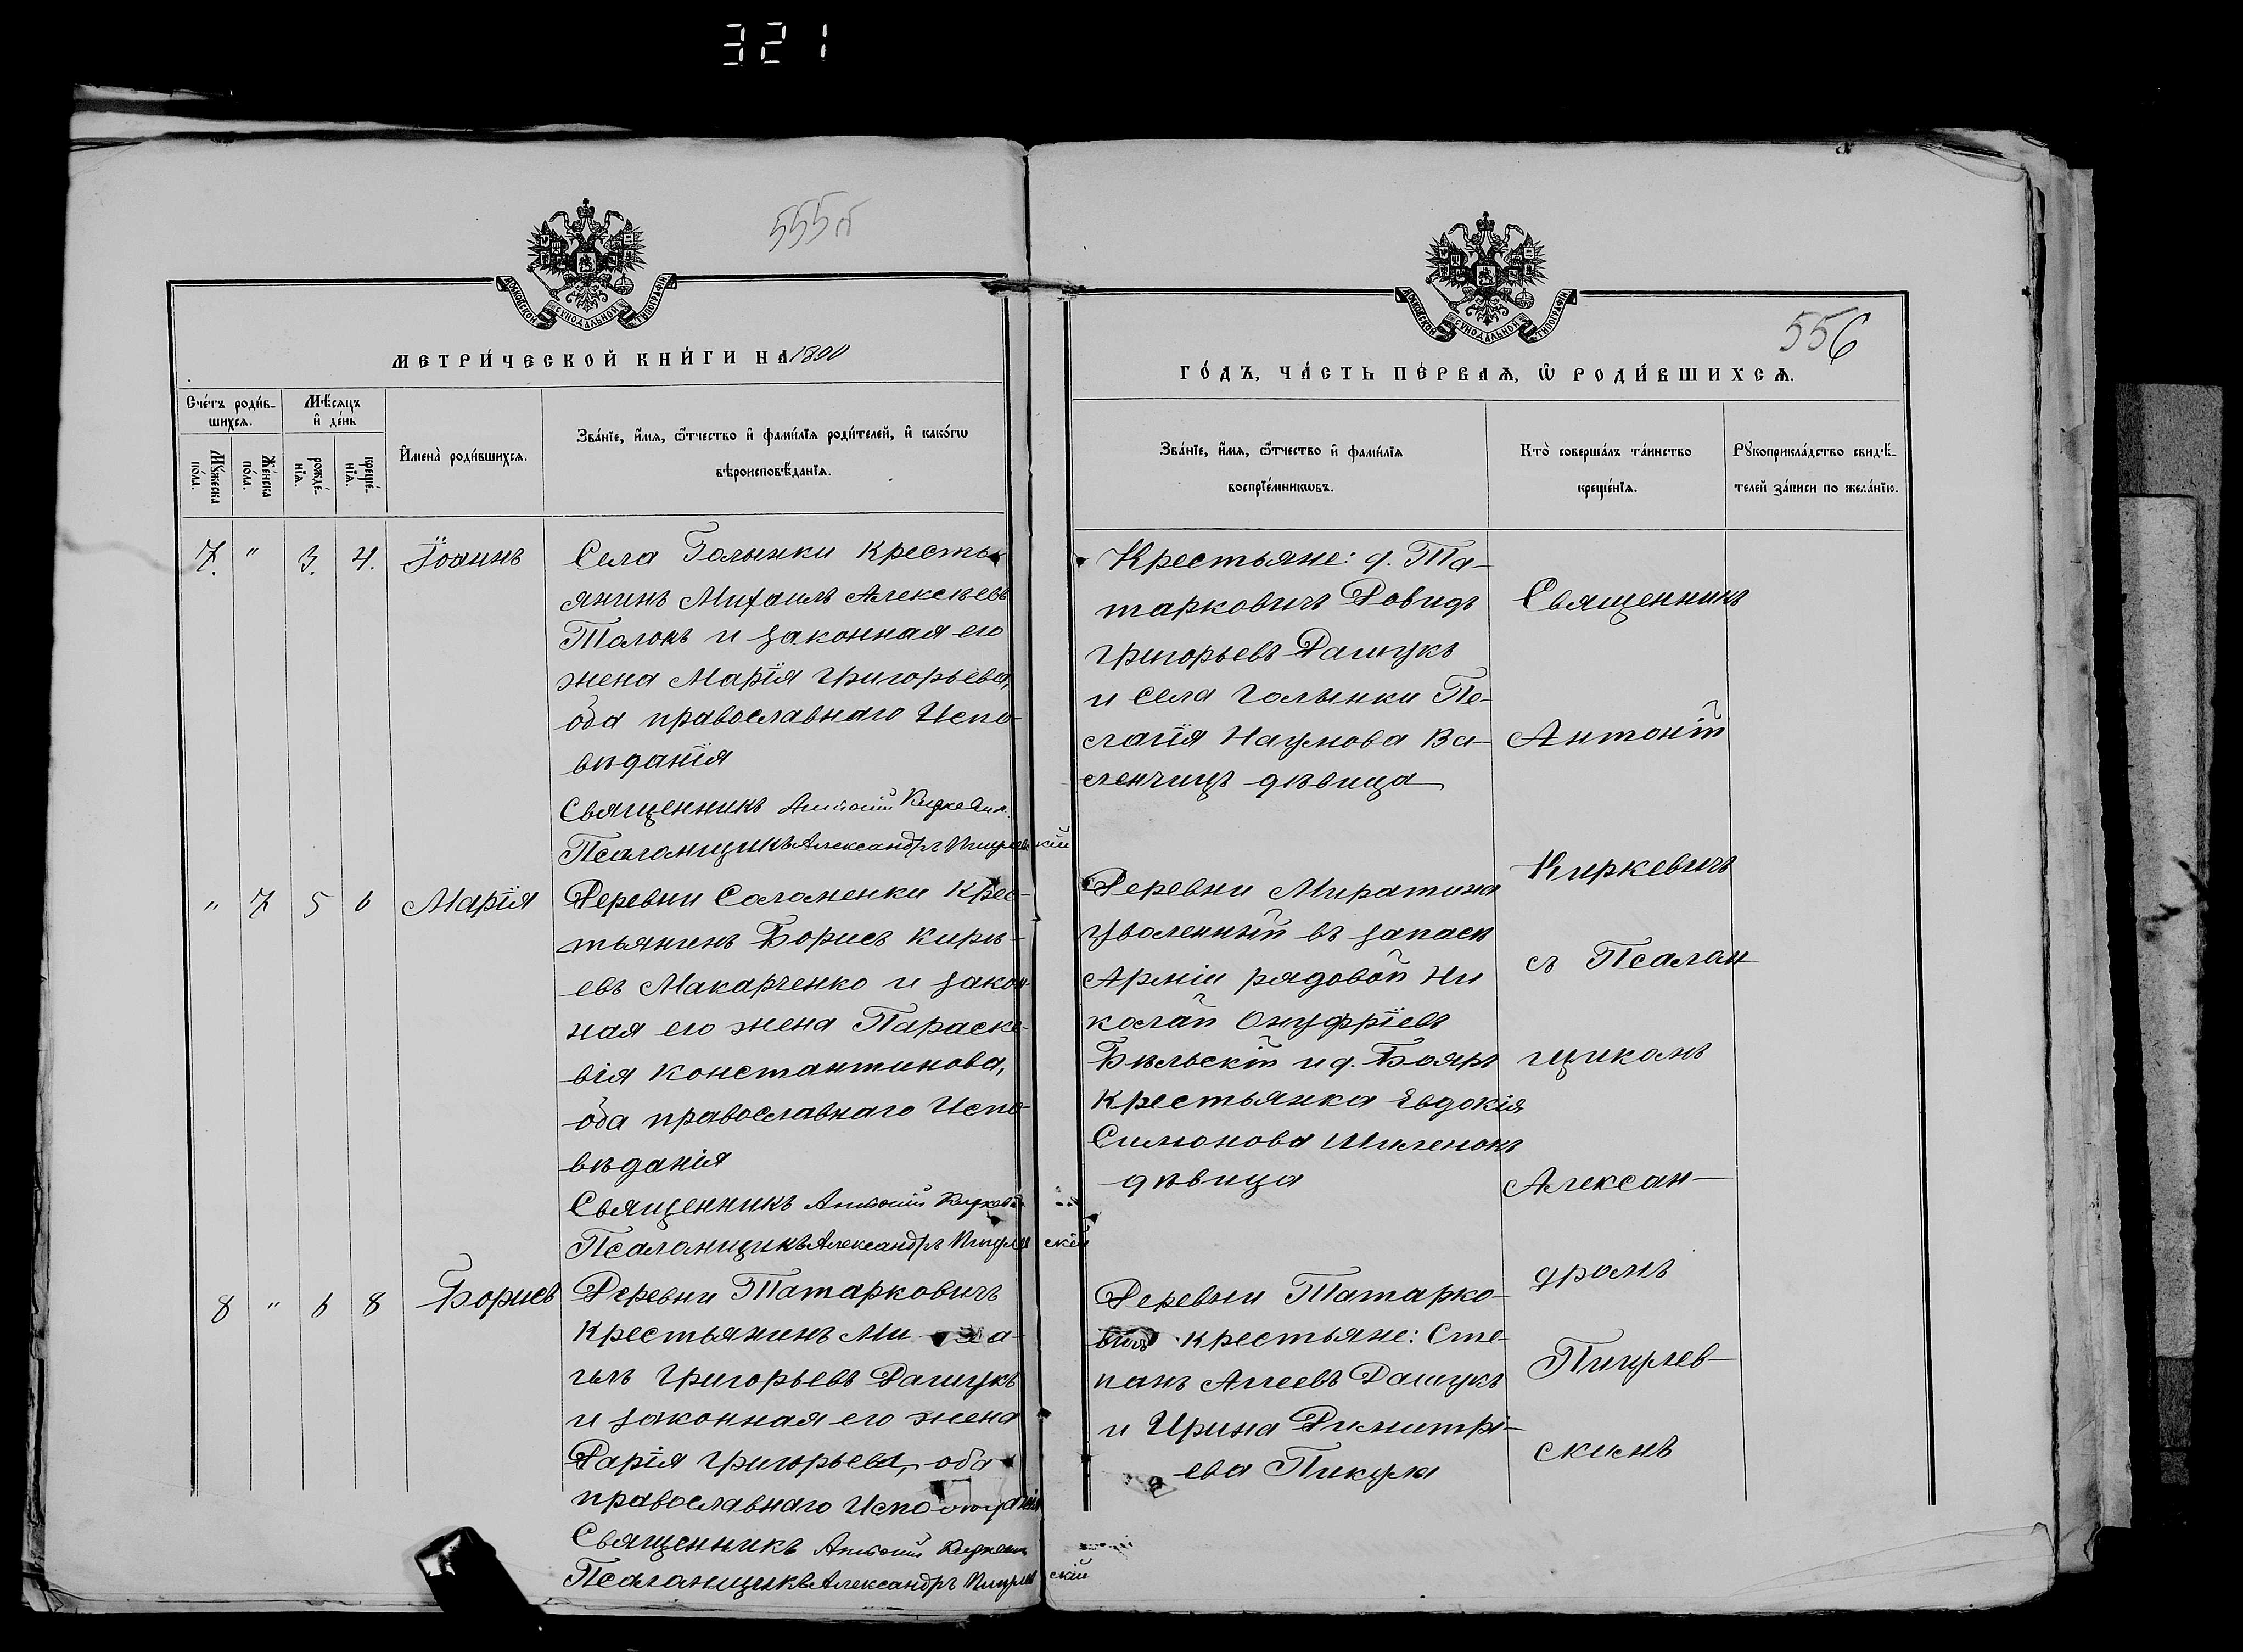 321
555об
МОСКОВСКОЙ СѴНОДАЛЬНОЙ ТИПОГРАФІИ
МЕТРИ́ЧЕСКОЙ КНИ́ГИ НА 1890
Сче́тъ роди́в-
шихсѧ.
Мѣ́сѧцъ
и҆ де́нь
Мꙋ́жеска
по́ла.
Же́нска
по́ла.
рожде́-
нїѧ.
креще́-
нїѧ.
И҆мена̀ роди́вшихсѧ.
Зва́нїе, и҆́мѧ, ѻ҆́тчество и҆ фами́лїѧ роди́телей, и҆ како́гѡ
вѣроисповѣ́данїѧ.
7. " 3. 4. Іоаннъ
Села Голынки Кресть
янинъ Михаилъ Алексѣевъ
Толокъ и законная его
жена Марія Григорьева,
оба православнаго Испо-
вѣданія
Священникъ Антоній Киркевич
Псаломщикъ Александръ Пигулевскій
" 7 5 6 Марія
Деревни Саломенки Крес-
тьянинъ Борисъ Кирѣ-
евъ Макарченко и закон-
ная его жена Параске-
вія Константинова,
оба православнаго Испо-
вѣданія
Священникъ Антоній Киркевич
Псаломщикъ Александръ Пигулевскій
8 " 6 8 Борисъ
Деревни Татарковичъ
Крестьянинъ Миха-
илъ Григорьевъ Дашукъ
и законная его жена
Дарія Григорьева, оба
православнаго Исповѣданія
Священникъ Антоній Киркевич
Псаломщикъ Александръ Пигулевскій
556
МОСКОВСКОЙ СѴНОДАЛЬНОЙ ТИПОГРАФІИ
ГО́ДЪ, ЧА́СТЬ ПЕ́РВАѦ, Ѡ҆ РОДИ́ВШИХСѦ.
Зва́нїе, и҆́мѧ, ѻ҆́тчество и҆ фами́лїѧ
воспрїе́мникѡвъ.
Кто̀ соверша́лъ та́инство
креще́нїѧ.
Рꙋкоприкла́дство свидѣ́-
телей за́писи по жела́нїю.
Крестьяне: д. Та-
тарковичъ Довидъ
Григорьевъ Дашукъ
и села Голынки Пе-
лагія Наумова Ва-
ленчицъ дѣвица
Деревни Миратина
уволенный въ запасъ
Арміи рядовой Ни
колай Онуфріевъ
Бѣльскій и д. Бояръ
Крестьянка Евдокія
Симонова Шиленокъ
дѣвица
Деревни Татарко-
вичъ крестьяне: Сте-
панъ Агеевъ Дашукъ
и Ирина Димитрі-
ева Пикула
Священникъ
Антоній
Киркевичъ
съ Псалом
щикомъ
Алексан-
дромъ
Пигулев-
скимъ